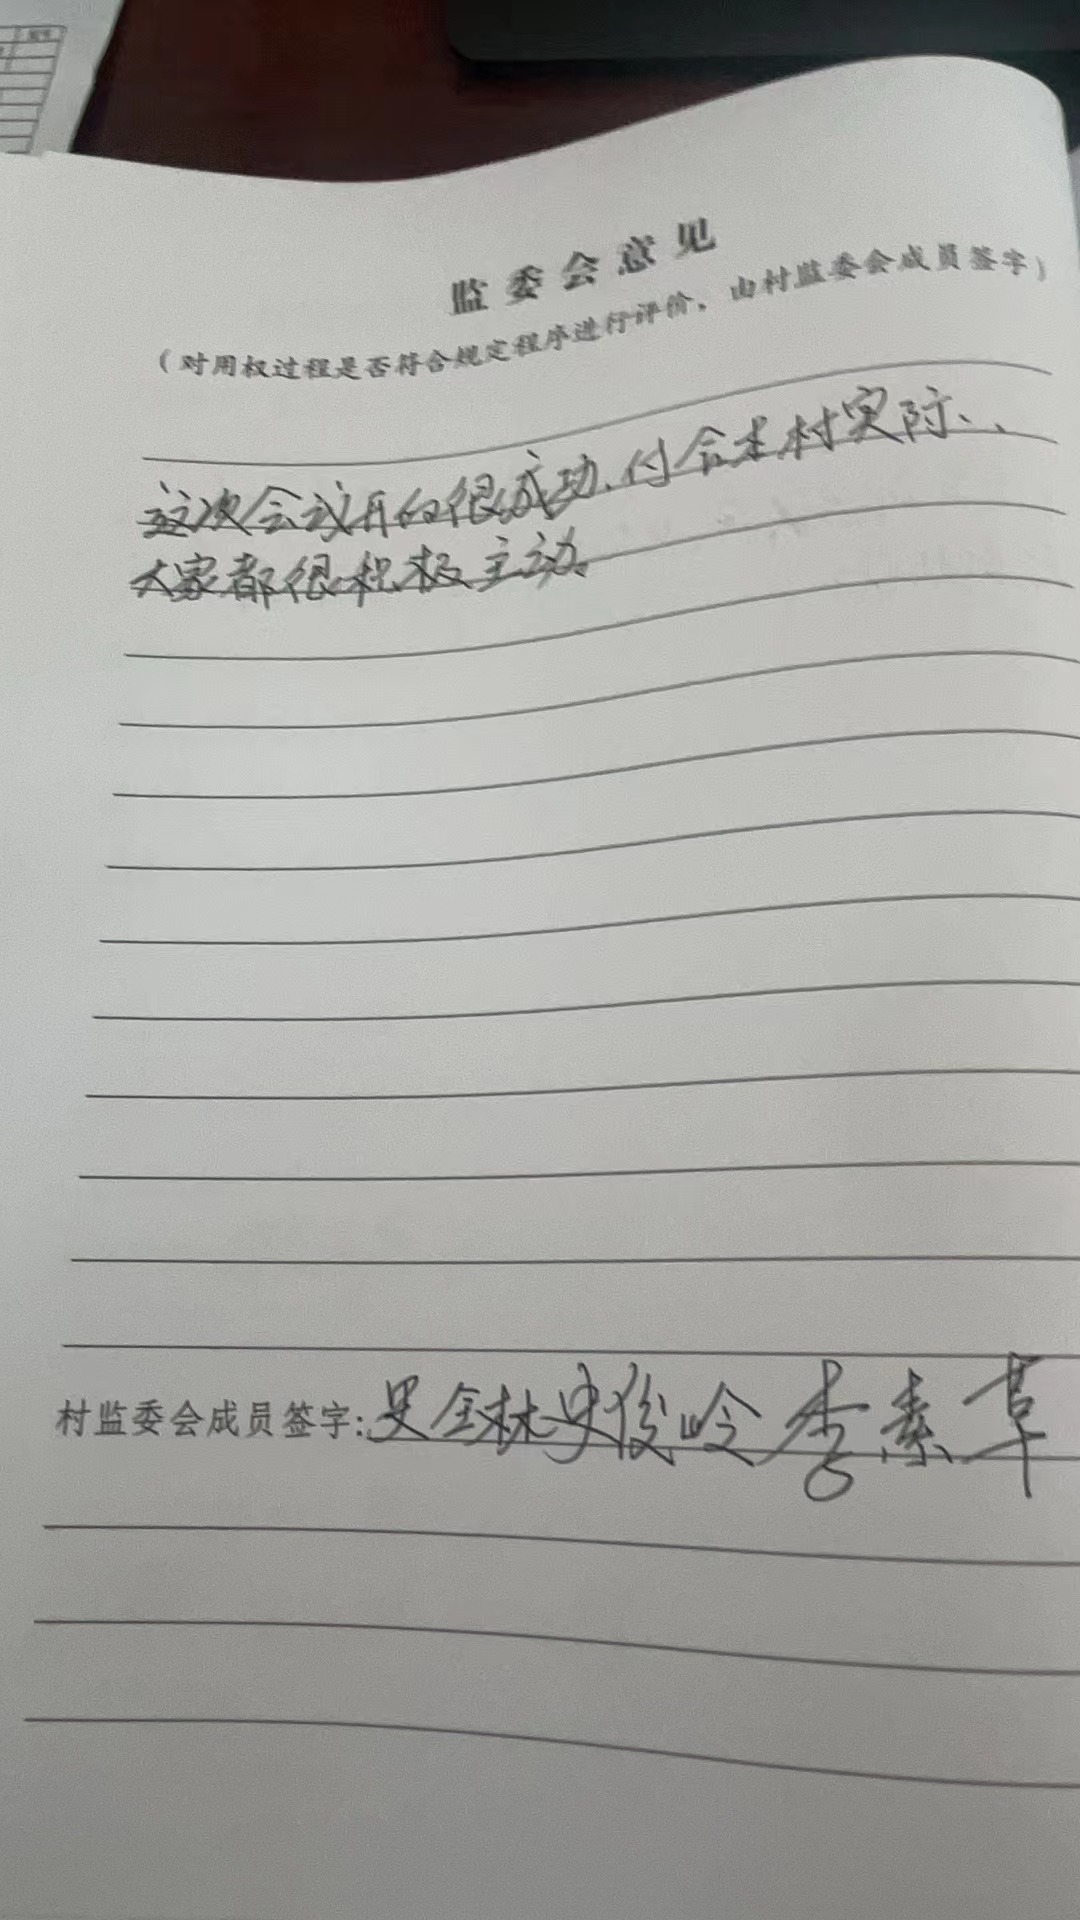 监委会意见
（对用权过程是否符合规定程序进行评价，由村监委会成员签字）
这次会议开的很成功、付合本村实际、、
大家都很积极主动、
村监委会成员签字：史金林 史俊岭 李素草